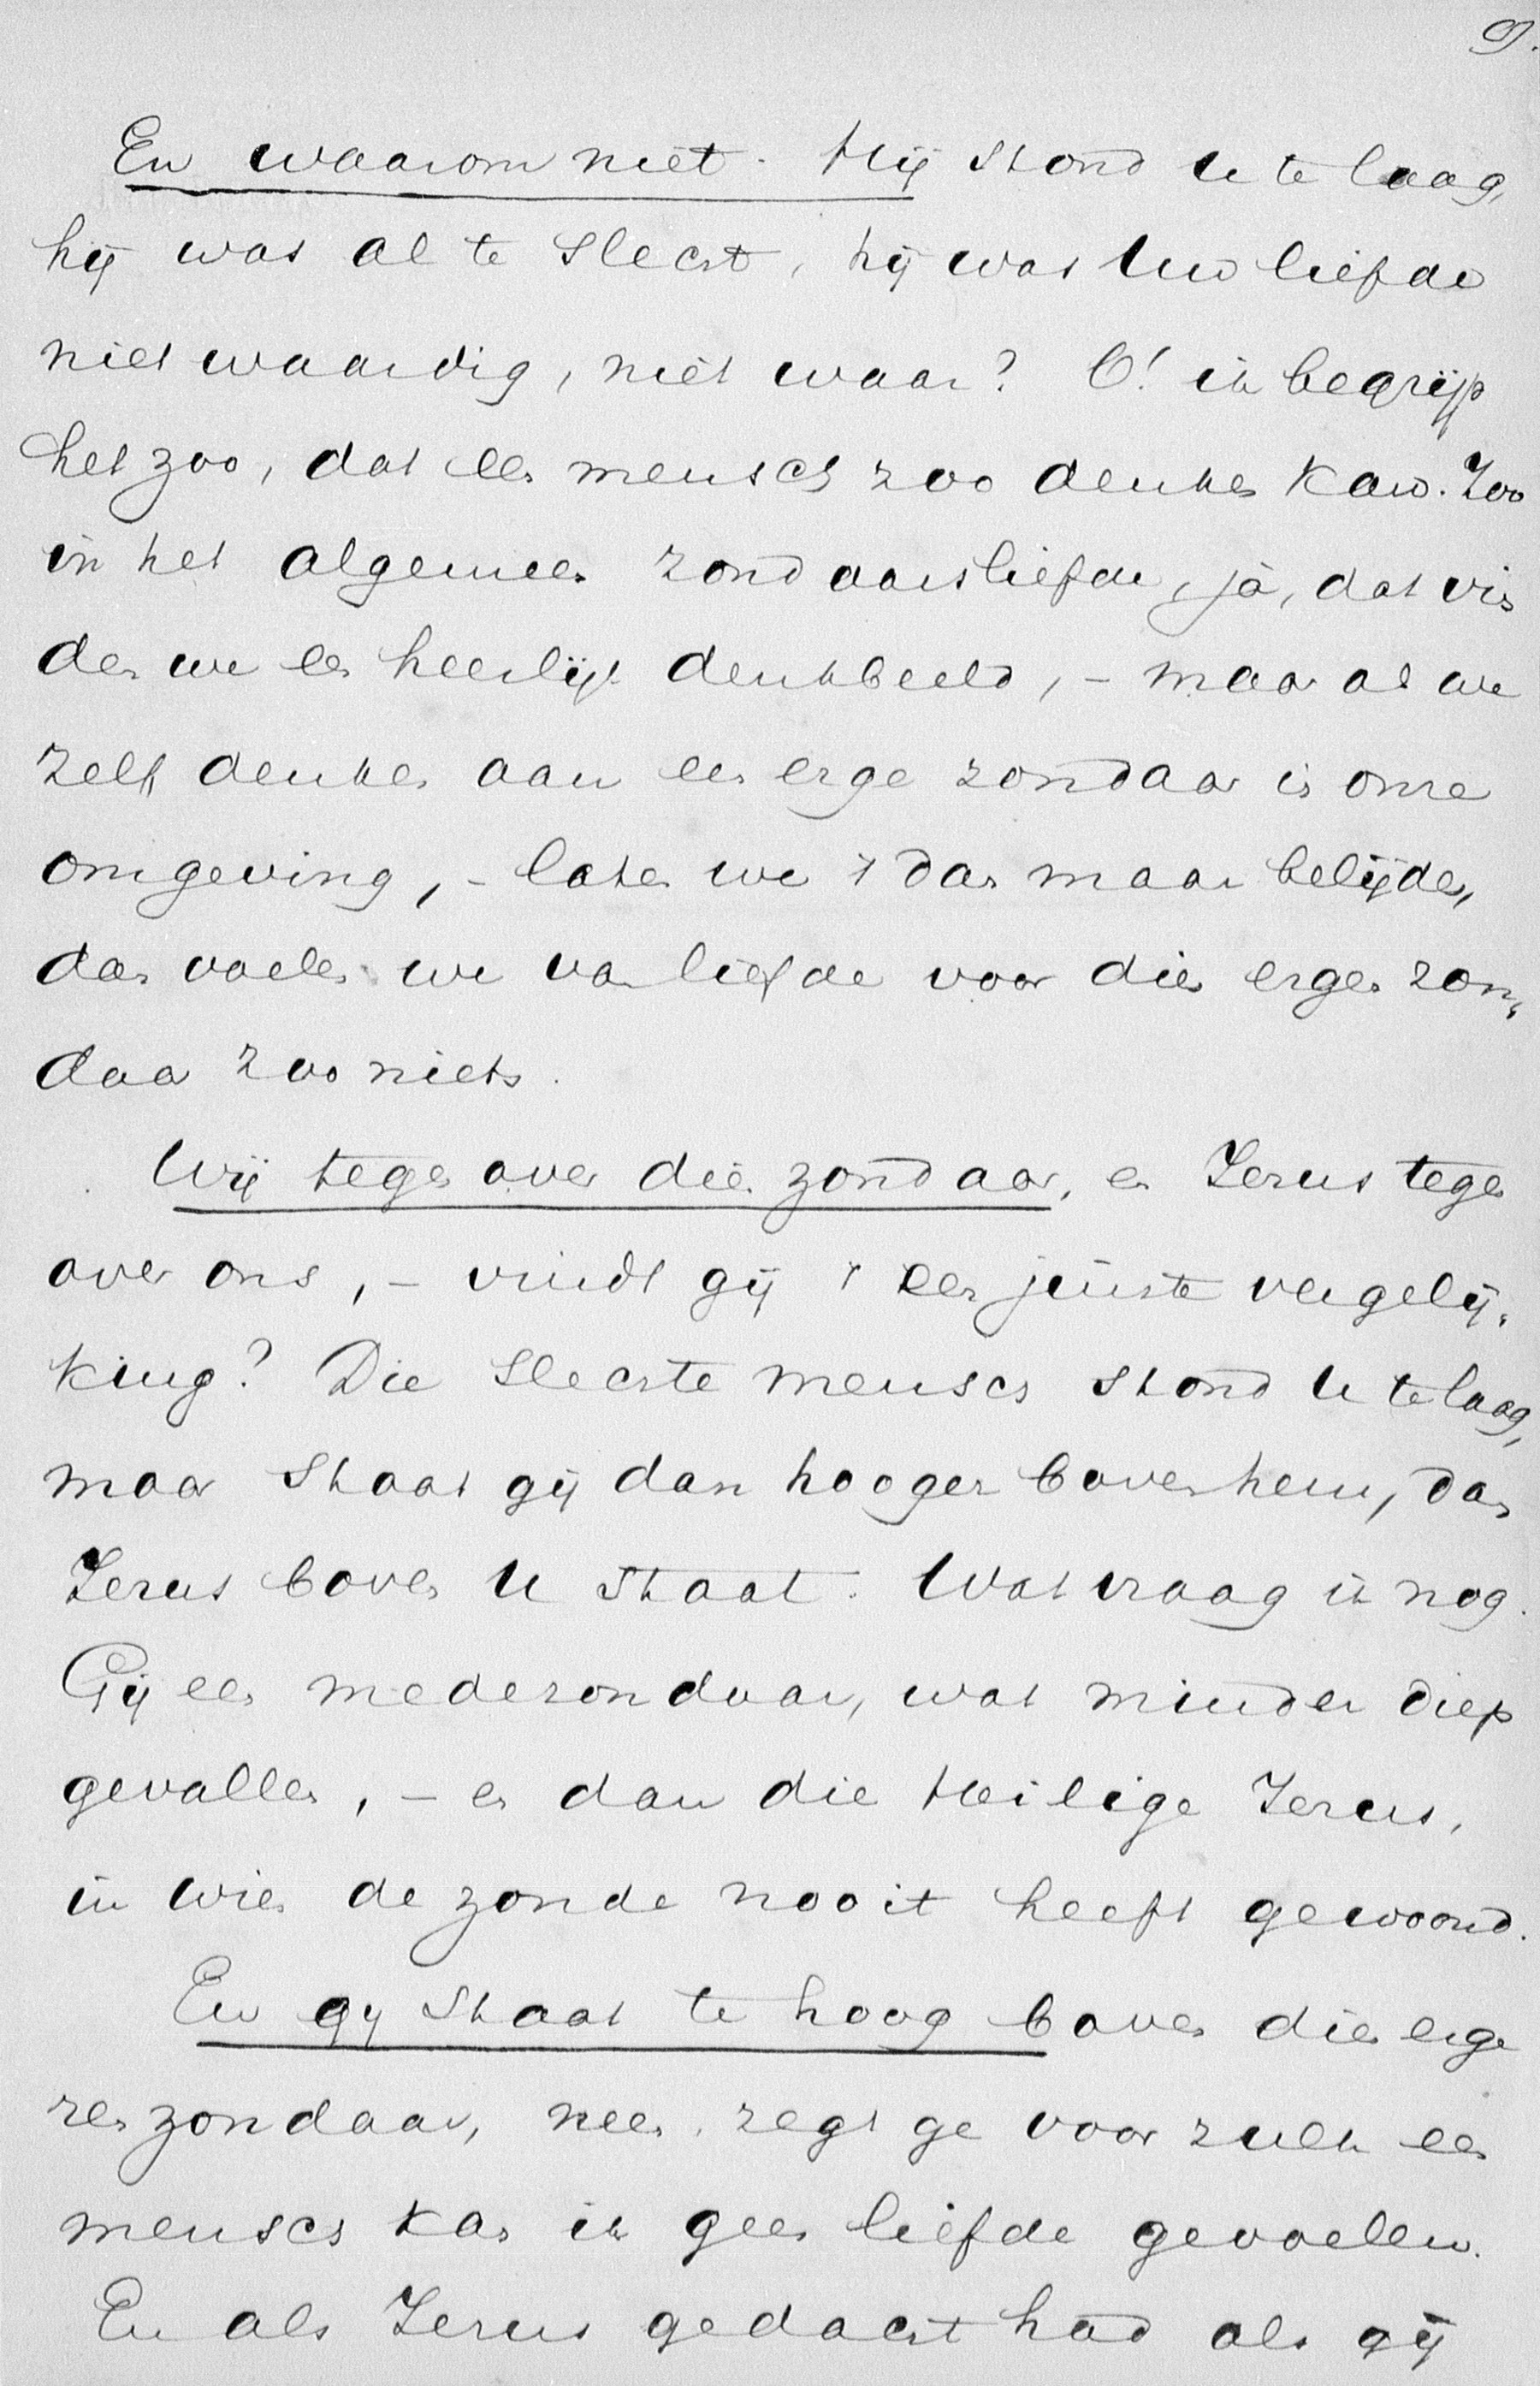 9.
En waarom niet. Hij stond U te laag,
hij was al te slecht, hij was Uw liefde
niet waardig, niet waar? O! ik begrijp
het zoo, dat een mensch zoo denken kan. Zoo
in het algemeen zondaarsliefde, ja, dat vin
den we een heerlijk denkbeeld, – maar als we
zelf denken aan een erge zondaar in onze
omgeving, – laten we 't dan maar belijden,
dan voelen we van liefde voor dien ergen zon„
daar zoo niets.
Wij tegenover dien zondaar, en Jezus tegen
over ons, – vindt gij 't een juiste vergelij„
king? Die slechte mensch stond U te laag,
maar staat gij dan hooger boven hem, dan
Jezus boven U staat. Wat vraag ik nog.
Gij een medezondaar, wat minder diep
gevallen, – en dan die Heilige Jezus,
in wien de zonde nooit heeft gewoond.
En gij staat te hoog boven dien erge
ren zondaar, neen, zegt ge voor zulk een
mensch kan ik geen liefde gevoelen.
En als Jezus gedacht had als gij